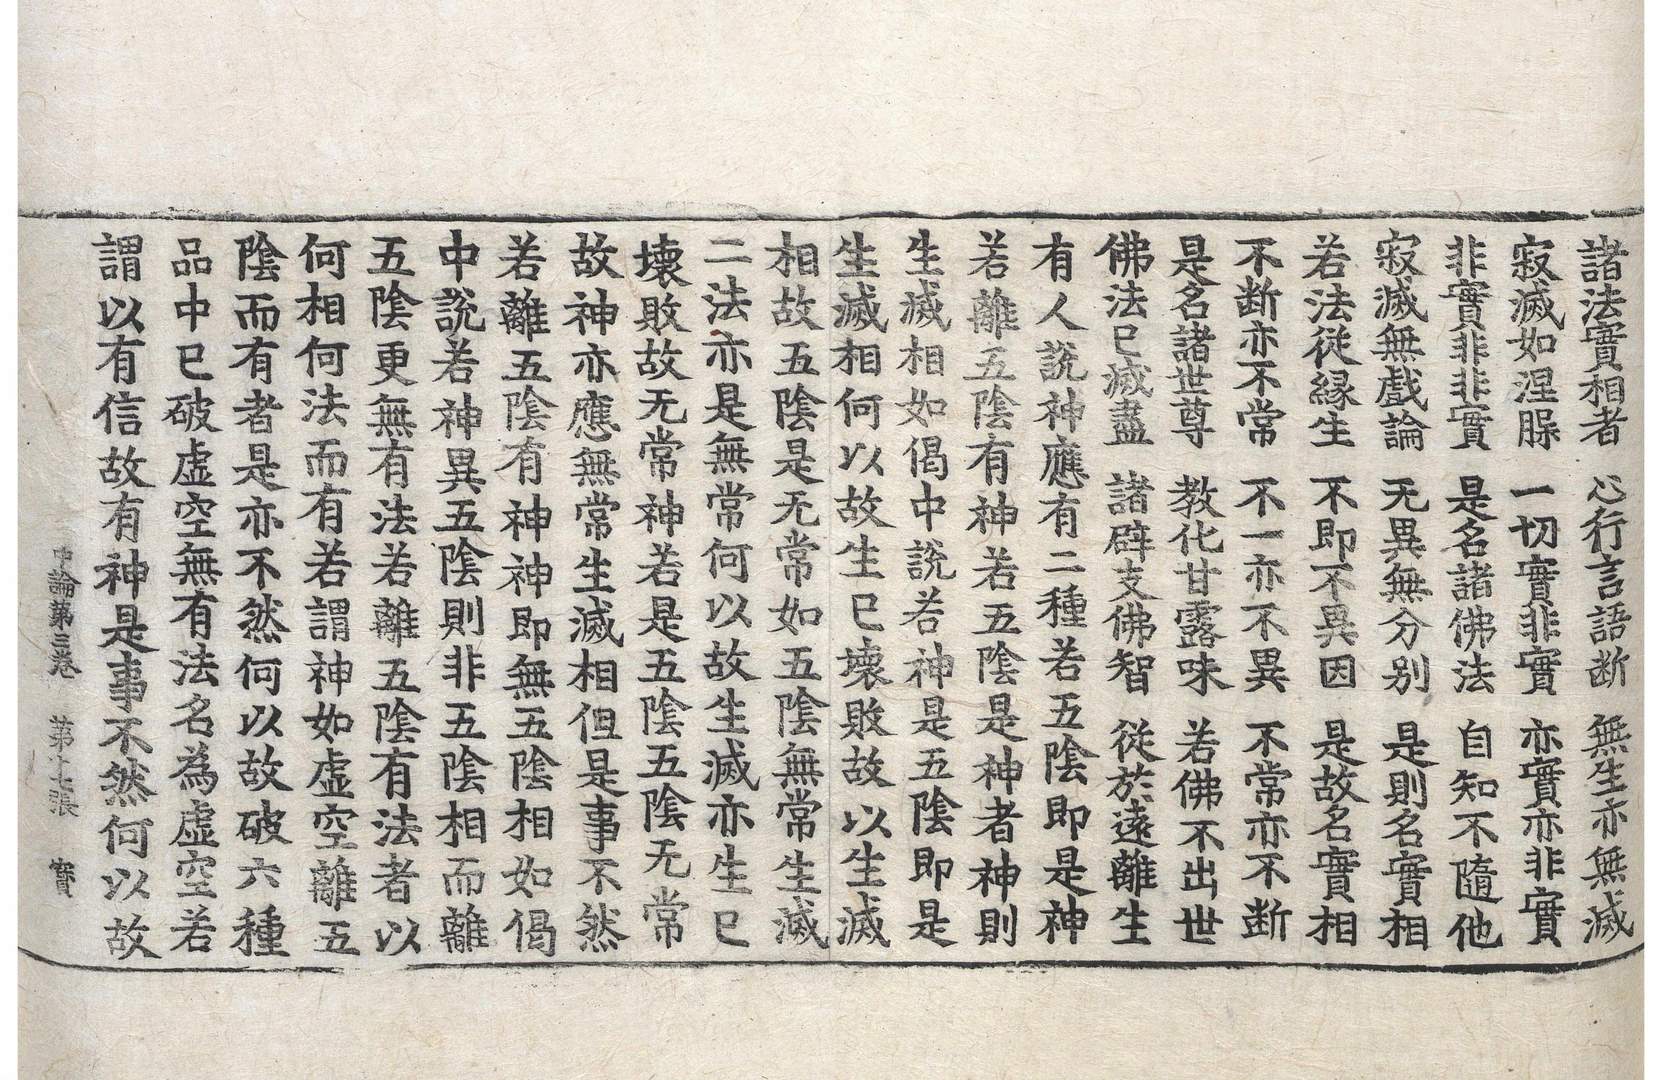 諸法實相者　心行言語断　無生亦無滅
寂滅如涅槃　一切實非實　亦實亦非實
非實非非實　是名諸佛法　自知不隨他
寂滅無戲論　无異無分别　是則名實相
若法從縁生　不即不異因　是故名實相
不断亦不常　不一亦不異　不常亦不断
是名諸世尊　教化甘露味　若佛不出世
佛法已滅盡　諸辟支佛智　從於遠離生
有人說神應有二種若五陰即是神
若離五陰有神若五陰是神者神則
生滅相如偈中說若神是五陰即是
生滅相何以故生已壞敗故以生滅
相故五陰是无常如五陰無常生滅
二法亦是無常何以故生滅亦生已
壞敗故无常神若是五陰五陰无常
故神亦應無常生滅相但是事不然
若離五陰有神神即無五陰相如偈
中說若神異五陰則非五陰相而離
五陰更無有法若離五陰有法者以
何相何法而有若謂神如虚空離五
陰而有者是亦不然何以故破六種
品中已破虚空無有法名為虚空若
謂以有信故有神是事不然何以故
中論第三卷　第十七張　寳